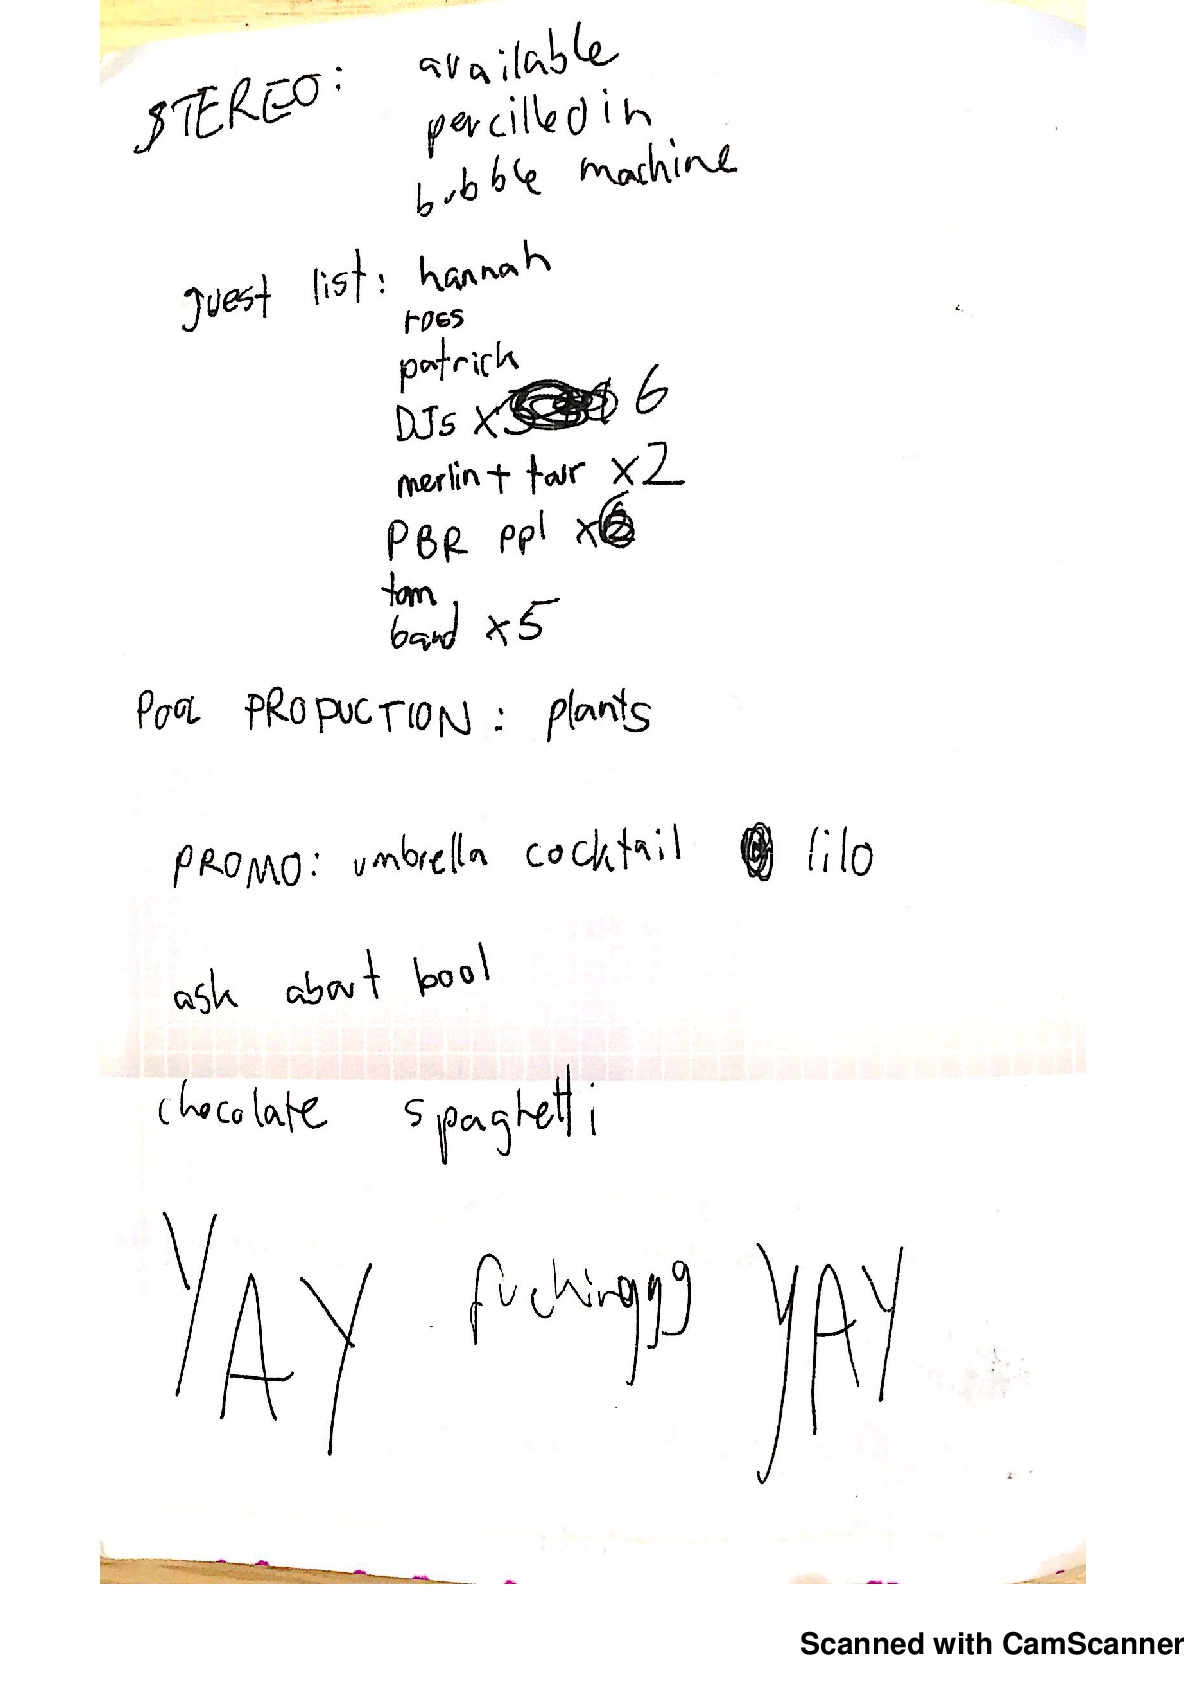 STEREO: available
pencilled in
bubble machine
guest list: hannah
ross
patrick
DJs x 6
merlin + tour x2
PBR ppl x
tom
band x5
POOL PRODUCTION: plants
PROMO: umbrella cocktail lilo
ask about bool
chocolate spaghetti
YAY fuckinggg YAY
Scanned with CamScanner